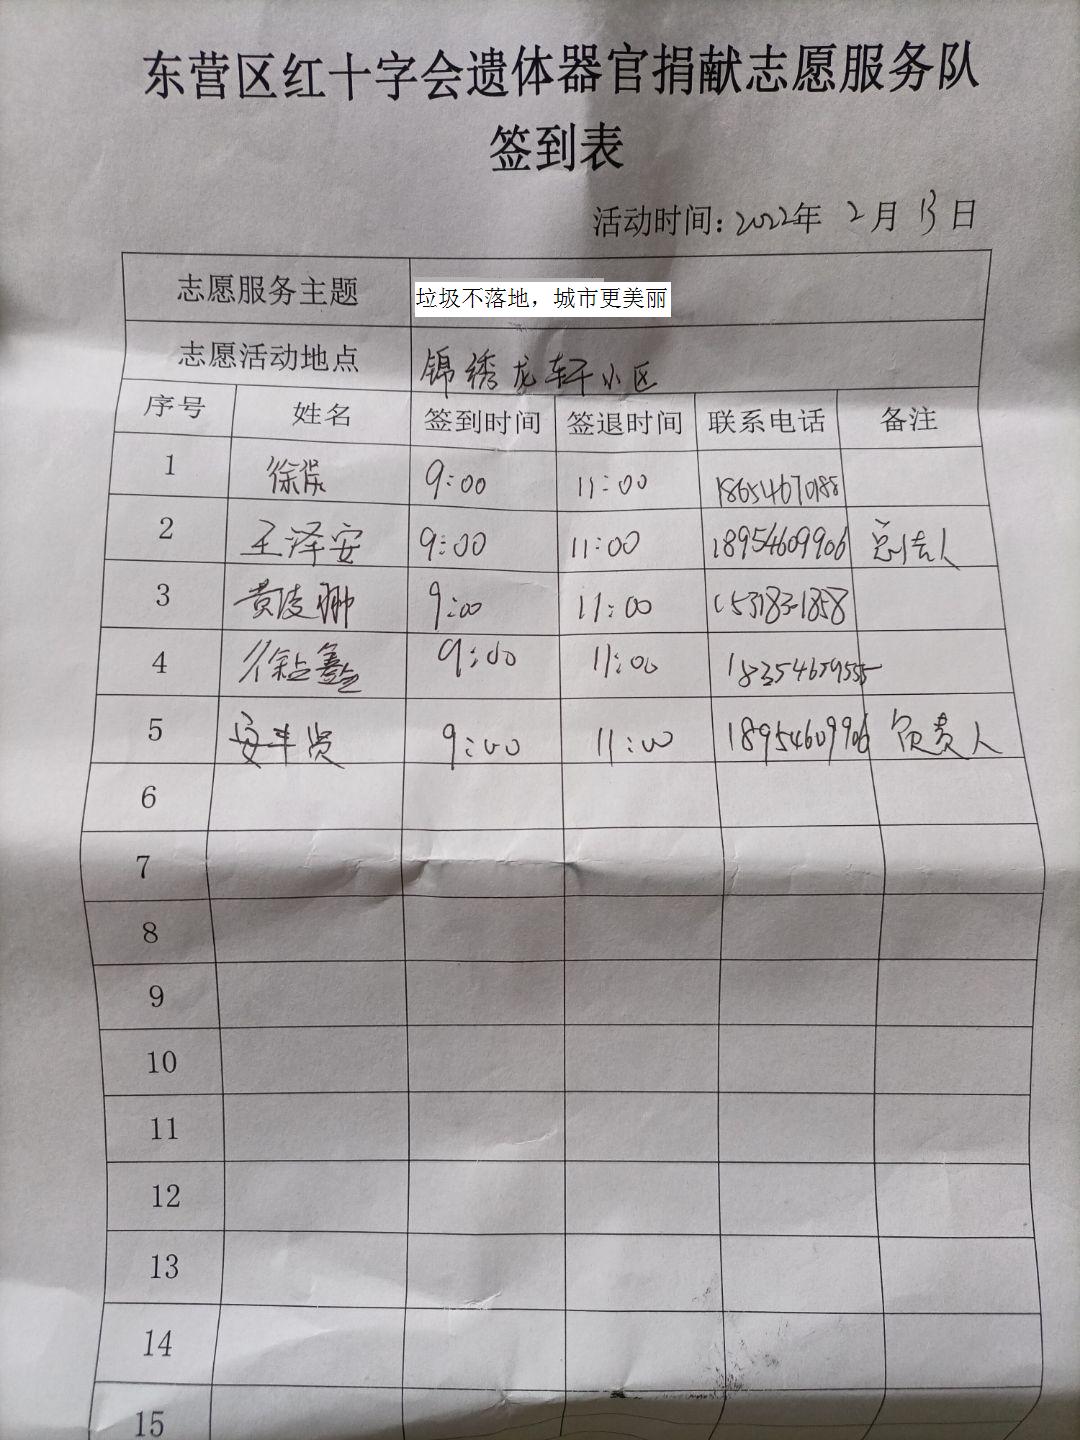 东营区红十字会遗体器官捐献志愿服务队
签到表
活动时间：2022年 2月 13日
志愿服务主题 垃圾不落地，城市更美丽
志愿活动地点 锦绣龙轩小区
序号 姓名 签到时间 签退时间 联系电话 备注
1 徐 9:00 11:00 18654670188
2 王泽安 9:00 11:00 18954609906 人
3 黄凌翀 9:00 11:00
4 徐占鑫 9:00 11:00 18354679555
5 安丰贤 9:00 11:00 18954609906 负责人
6
7
8
9
10
11
12
13
14
15